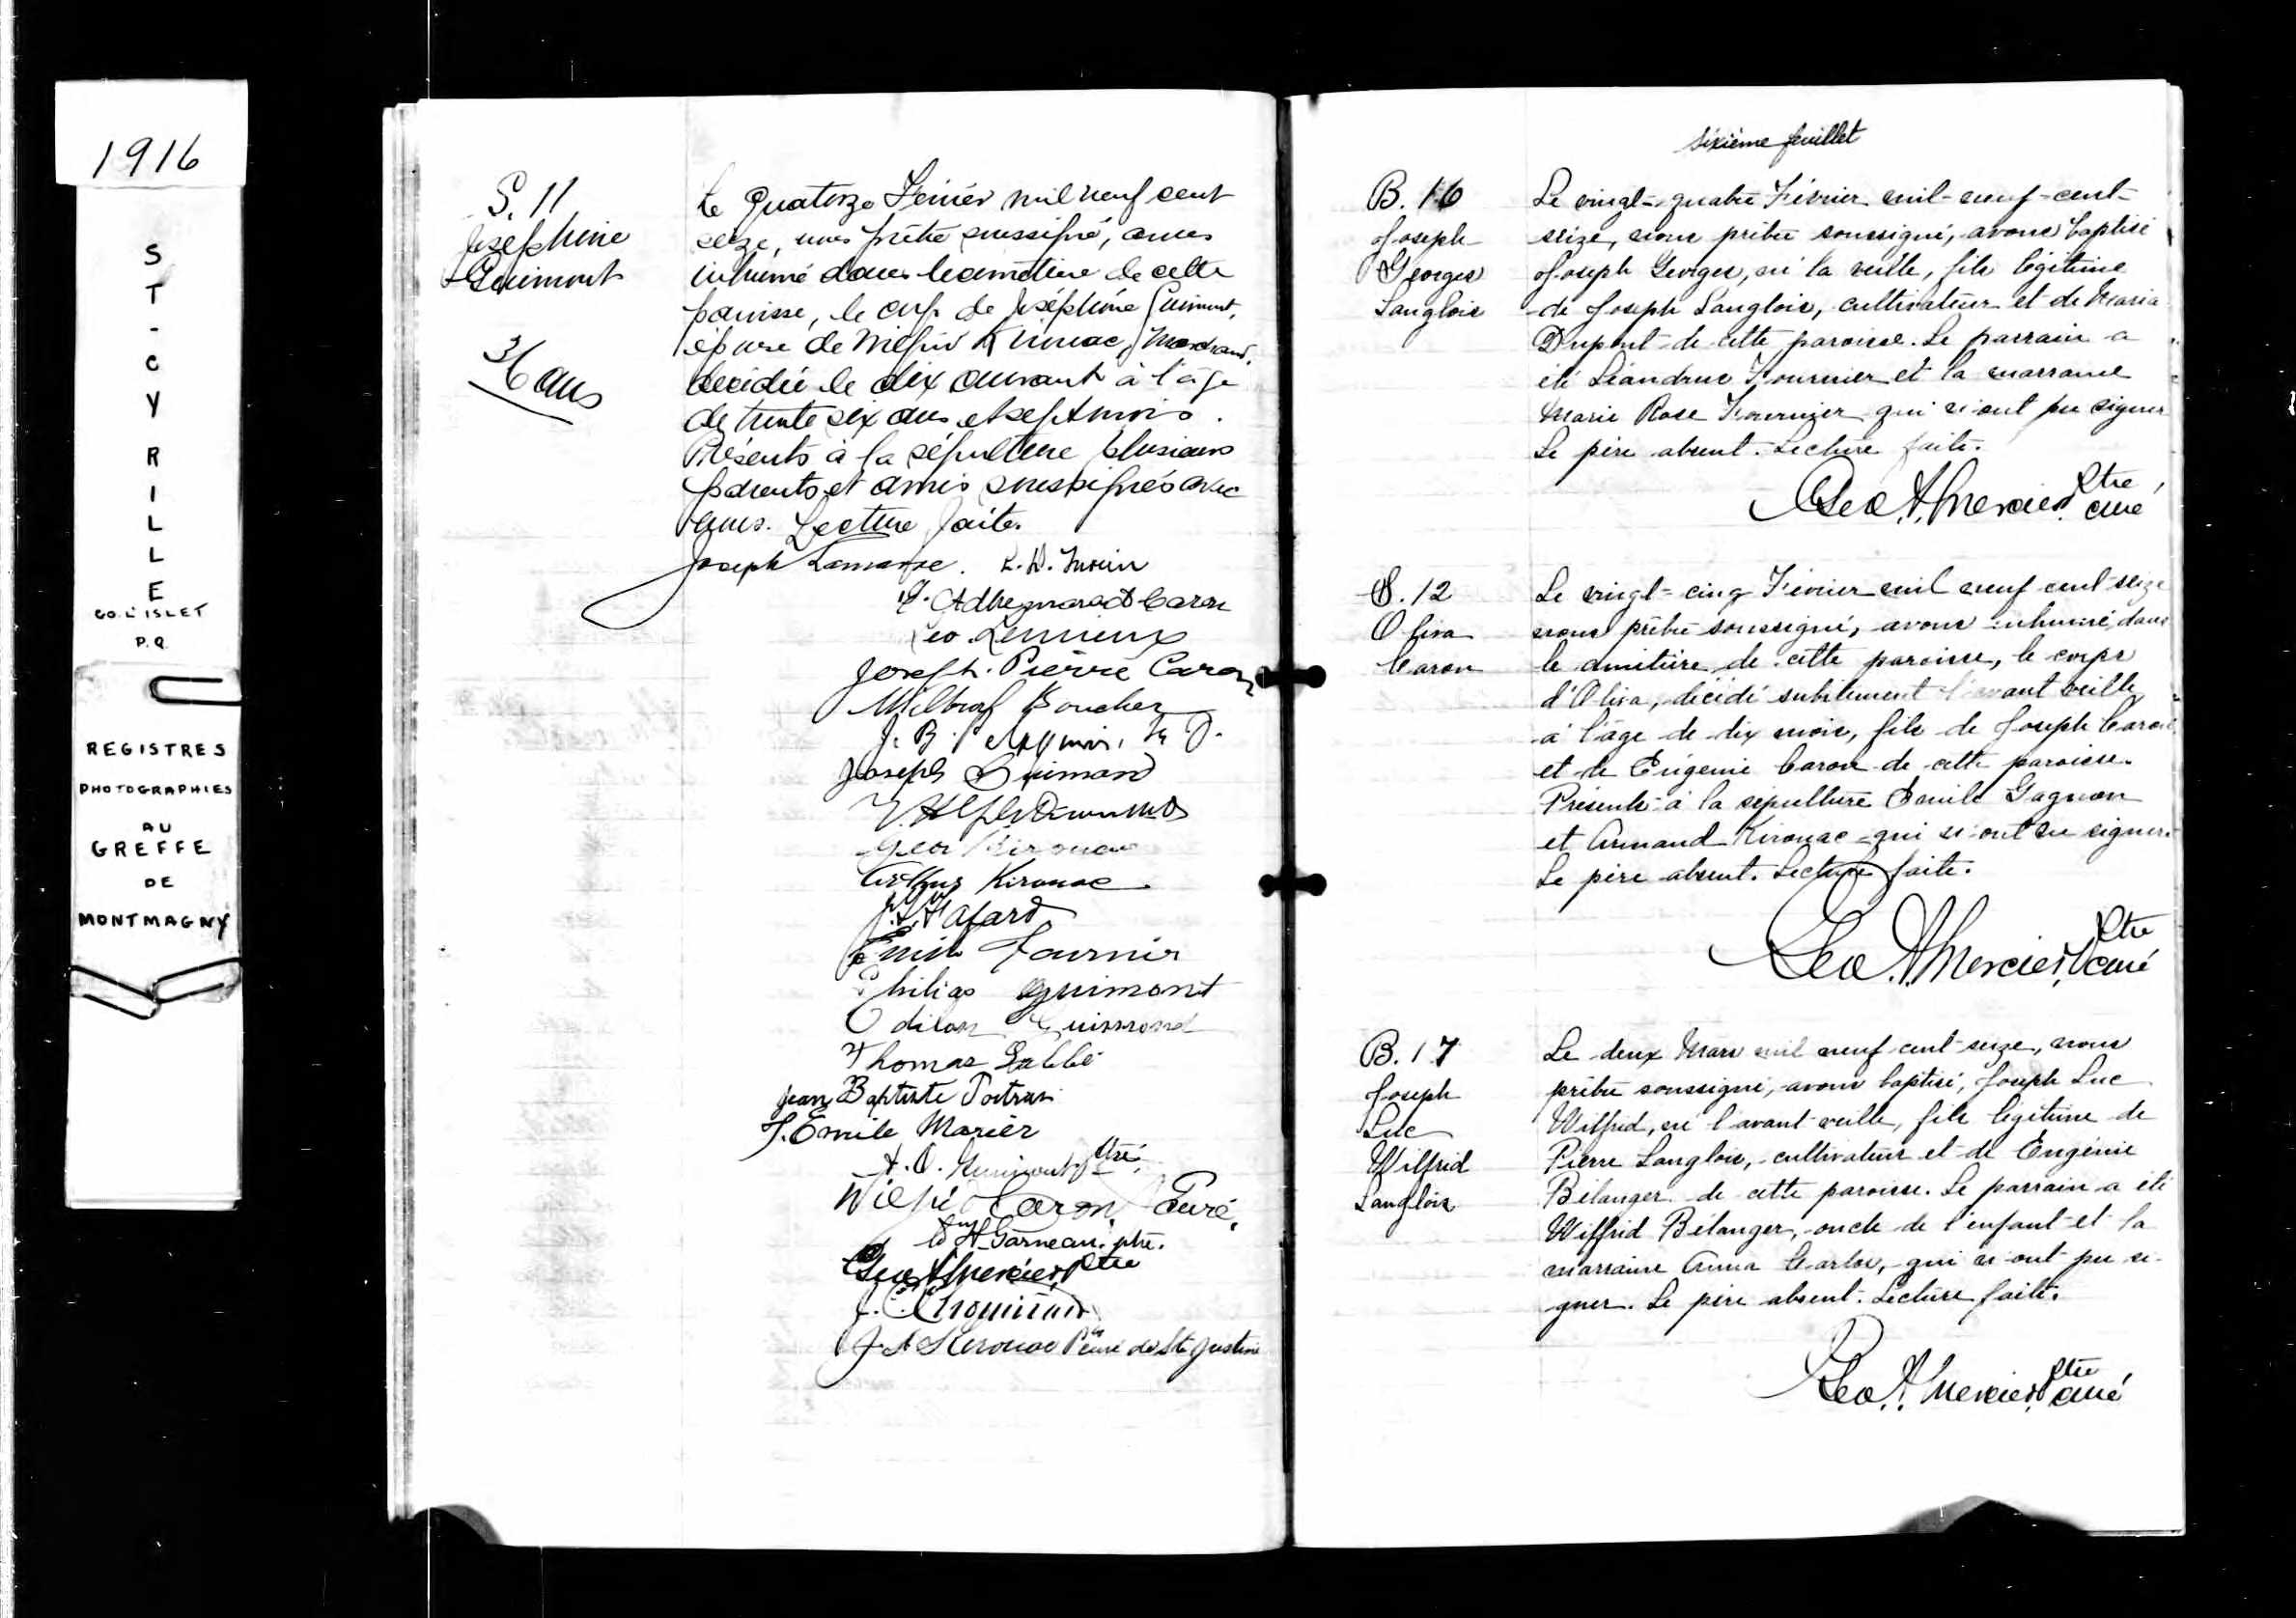 1916
ST-CYRILLE
CO. L'ISLET
P.Q.
REGISTRES
PHOTOGRAPHIES
AU
GREFFE
DE
MONTMAGNY
S. 11
Joséphine
Guimont
36 ans
Le quatorze Février mil neuf cent
seize, nous prêtre soussigné, avons
inhumé dans le cimetière de cette
paroisse, le corps de Joséphine Guimont,
épouse de Wilfrid Kirouac, Marchand,
décédée le dix courant à l'âge
de trente six ans et sept mois.
Présents à la sépulture plusieurs
parents et amis soussignés avec
nous. Lecture faite.
Joseph Lamarre. L. N.
Adhemard Caron
Leo Lemieux
Joseph. Pierre Caron
Boucher
J. B.
Joseph Guimond
Geo Kirouac
Arthur Kirouac
Emile Fournier
Philias Guimont
Odilon Guimond
Thomas Labbé
Jean Baptiste Poitras
J. Emile Marier
A. O. Guimont, Ptre
Wilfrid Caron, Curé,
Garneau, ptre.
Geo. A. Mercier, Ptre
J. A. Kirouac Curé de Ste Justine
sixième feuillet
B. 16
Joseph
Georges
Langlois
Le vingt-quatre Février mil-neuf-cent-
seize, nous prêtre soussigné, avons baptisé
Joseph Georges, né la veille, fils légitime
de Joseph Langlois, cultivateur et de Maria
Dupont de cette paroisse. Le parrain a
été Léandre Fournier et la marraine
Marie Rose Fournier qui n'ont pu signer
Le père absent. Lecture faite.
Geo. A. Mercier, Ptre, curé
S. 12
Oliva
Caron
Le vingt-cinq Février mil neuf cent-seize
nous prêtre soussigné, avons inhumé, dans
le cimetière de cette paroisse, le corps
d'Oliva, décédé subitement l'avant veille
à l'âge de dix mois, fils de Joseph Caron
et de Eugénie Caron de cette paroisse.
Présents à la sépulture Emile Gagnon
et Armand Kirouac qui n'ont su signer.
Le père absent. Lecture faite.
Geo. A. Mercier, Ptre curé
B. 17
Joseph
Luc
Wilfrid
Langlois
Le deux Mars mil neuf cent-seize, nous
prêtre soussigné, avons baptisé, Joseph Luc
Wilfrid, né l'avant-veille, fils légitime de
Pierre Langlois, cultivateur et de Eugénie
Bélanger de cette paroisse. Le parrain a été
Wilfrid Bélanger, oncle de l'enfant et la
marraine Anna, qui n'ont pu si-
gner. Le père absent. Lecture faite.
Geo. A. Mercier, Ptre, curé